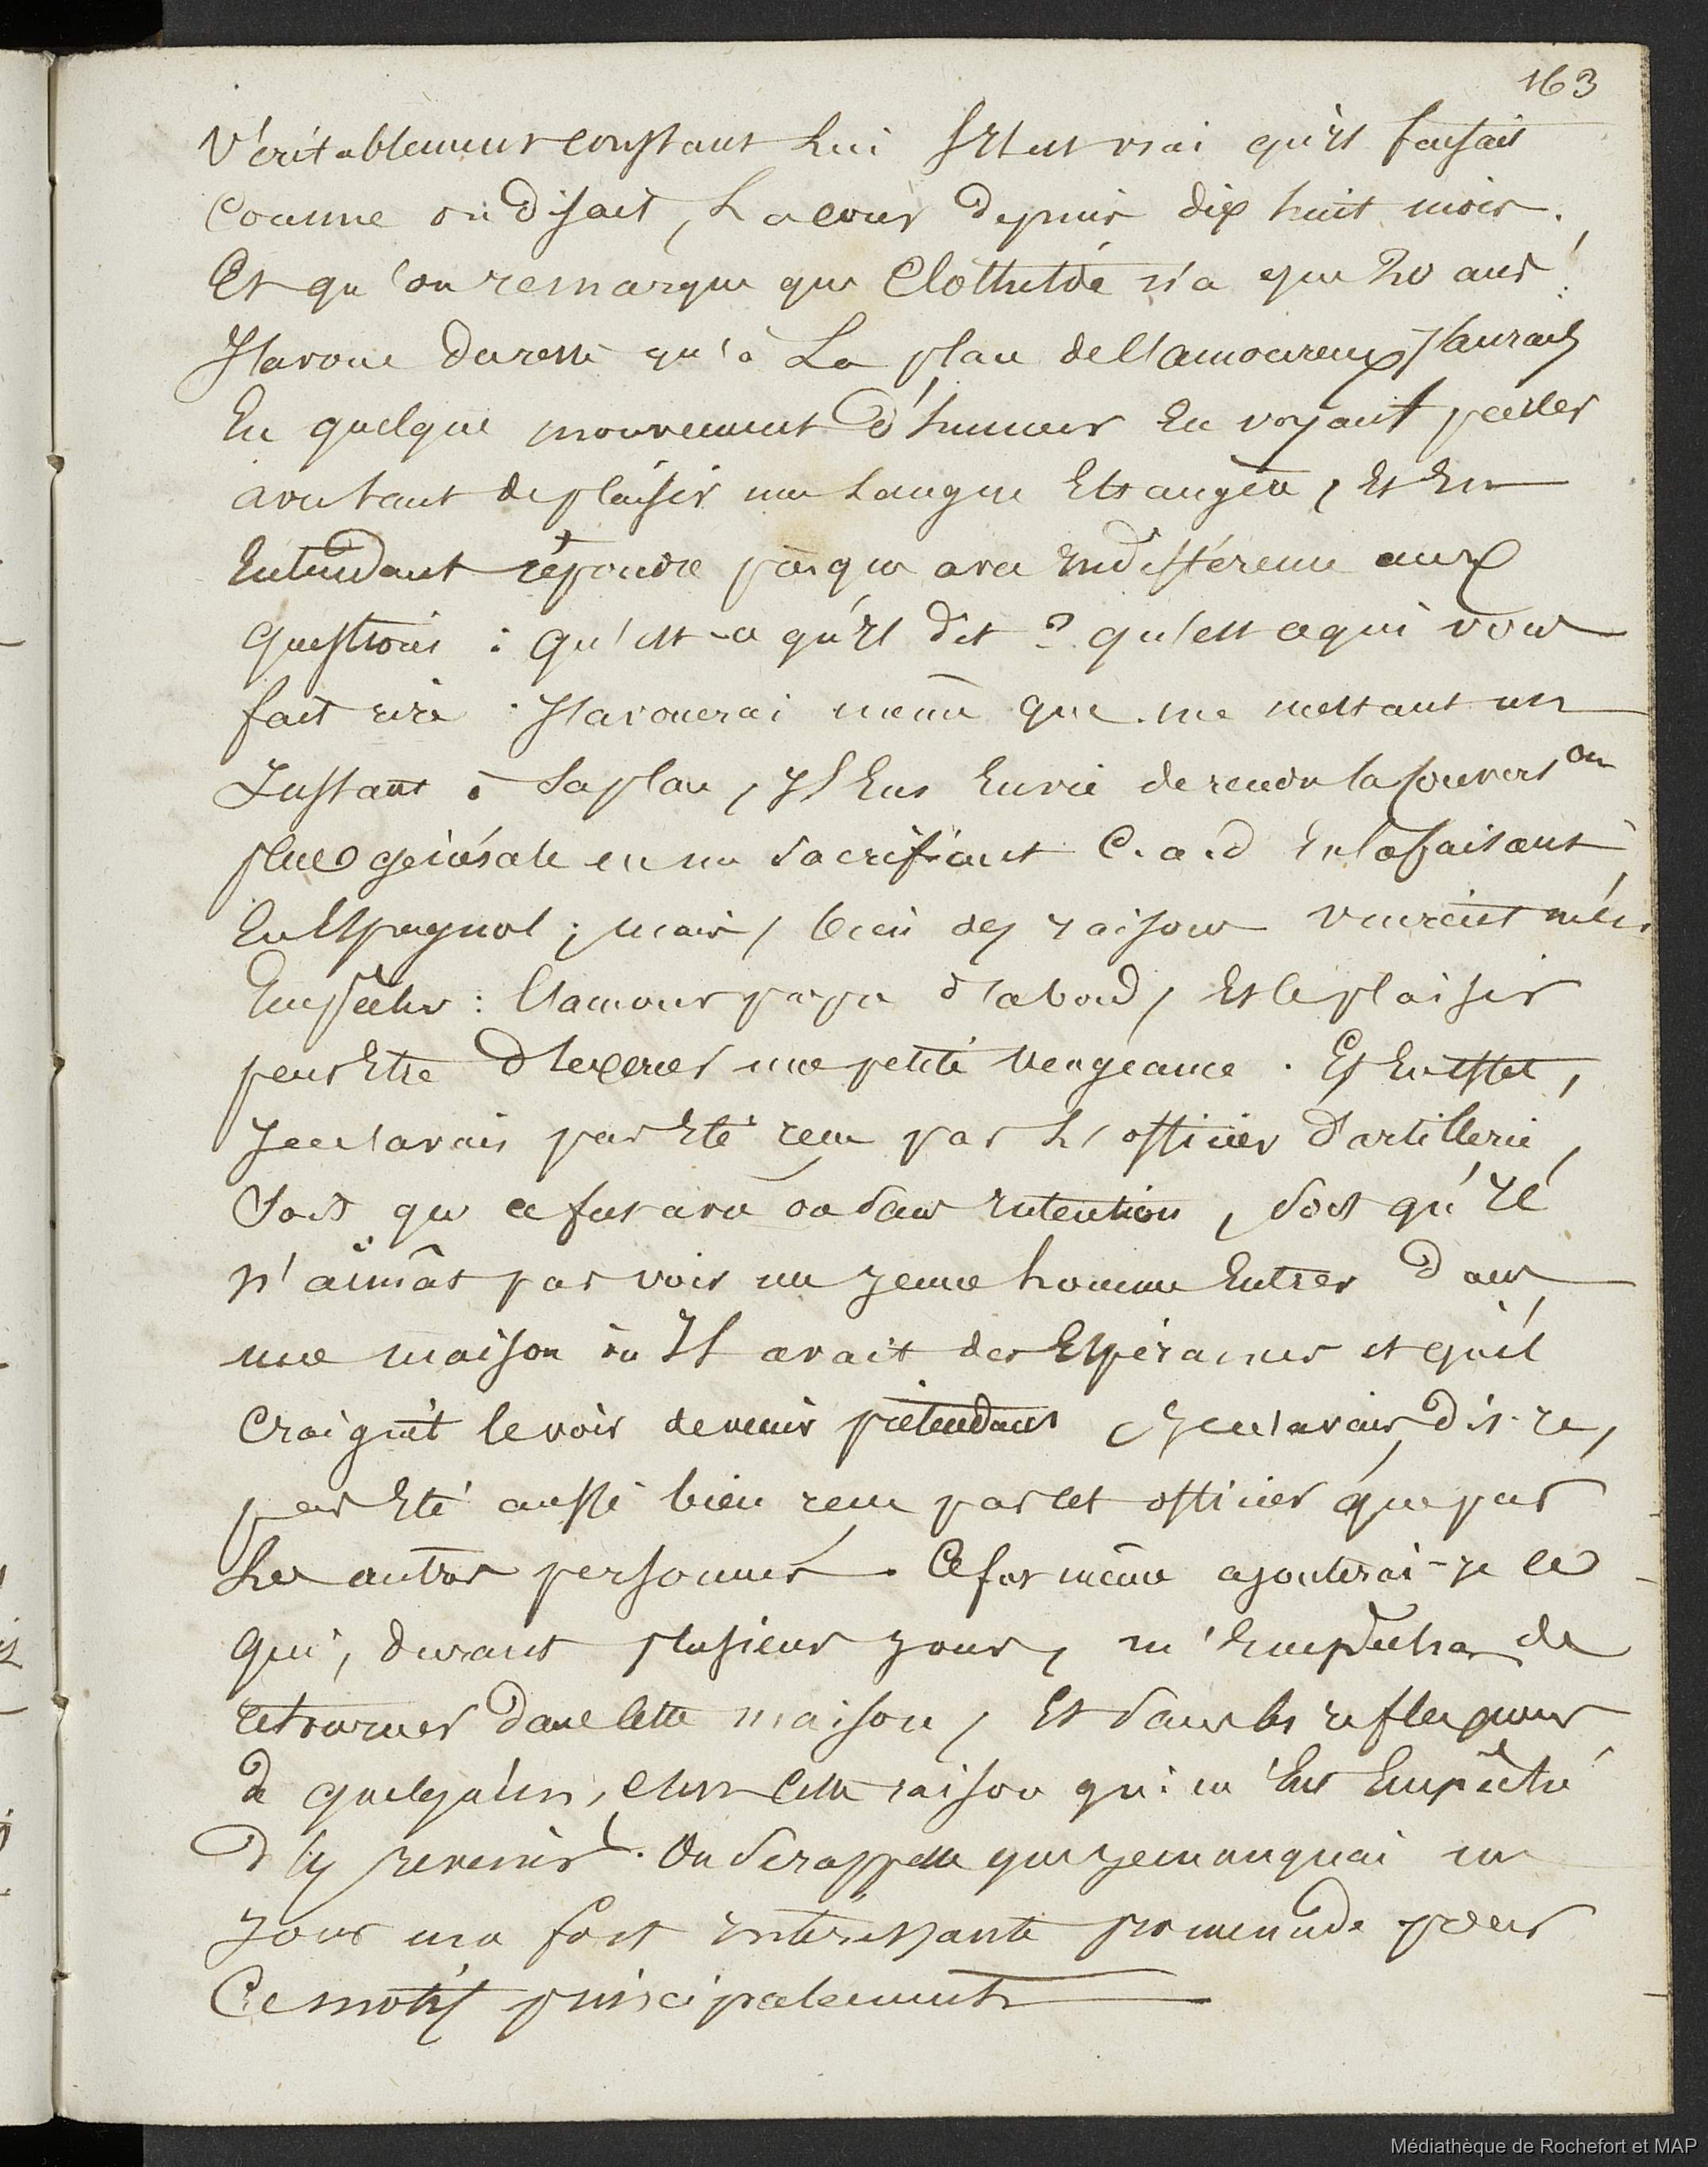 163
Véritablement constant lui s'il est vrai qu'il faisait
Comme on disait, la cour depuis dix huit mois.
Et qu'on remarque que Clothilde n'a que 20 ans!
J'avoue dureste qu'à La place de l'amoureux j'aurais
Eu quelque mouvement d'humeur En voyant parler
avec tant de plaisir une Langue Etrangère, Et En
Entendant répondre presque avec Indifférence aux
questions : Qu'est-ce qu'il dit ? qu'est ce qui vous
fait rire. J'avouerai même que me mettant un
Instant à sa place, j'Eus Envie de rendre la conversion
plus générale en me sacrifiant C.a.d En la faisant
En Espagnol ; mais, bien des raisons vinrent m'en
Empêcher : l'amour propre d'abord, Et le plaisir
peut Etre d'exercer une petite vengeance. Et En effet,
Je n'avais pas Eté reçu par L'officier d'artillerie,
Soit que ce fut avec ou sans Intention, soit qu'Il
n'aimât pas voir un jeune homme Entrer dans
une maison où Il avait des Espérances et qu'il
Craignit le voir devenir prétendant, je n'avais, dis-je,
pas Eté aussi bien reçu par cet officier que par
Les autres personnes. Ce fut même ajouterai-je ce
qui, durant plusieurs jours, m'Empêcha de
retourner dans cette maison, Et sans les reflexions
de quelqu'un, c'est cette raison qui m'Eut Empêché
d'y revenir. On se rappelle que je manquai un
jour une fort intéressante promenade pour
Ce motif principalement